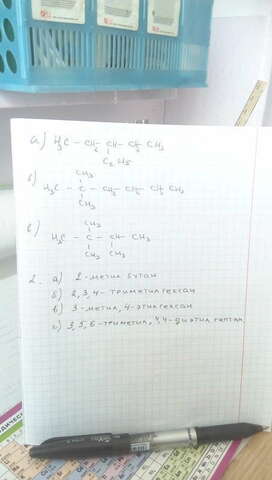 а) H3C – CH2 – CH – CH2 – CH3
C2H5
б)
CH3
H3C – C – CH2 – CH2 – CH2 – CH3
CH3
в)
CH3
H3C – C – CH – CH3
CH3 CH3
2. а) 2-метил бутан
б) 2,3,4-триметилгексан
в) 3-метил, 4-этилгексан
г) 3,5,6-триметил, 4,4-диэтил гептан